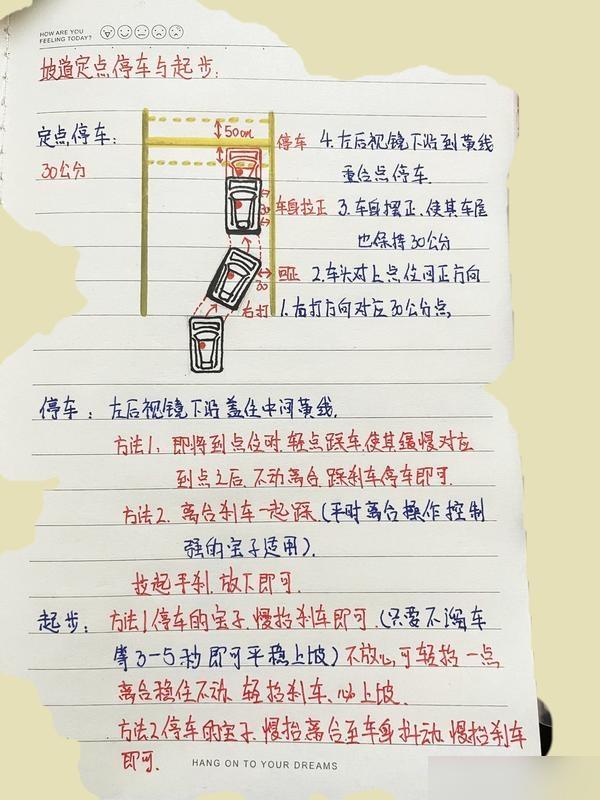 HOW ARE YOU
FEELING TODAY?
坡道定点停车与起步:
定点停车:
30公分
50cm
停车 4.左后视镜下沿到黄线
重合点停车.
30
车身拉正 3.车身摆正.使其车尾
也保持30公分
30
回正 2.车头对上点位回正方向
右打 1.右打方向对应30公分点.
停车: 左后视镜下沿盖住中间黄线.
方法1. 即将到点位时.轻点踩车.使其缓慢对应
到点之后.不动离合.踩刹车停车即可.
方法2. 离合刹车一起踩.(平时离合操作控制
强的宝子适用).
拉起手刹.放下即可.
起步: 方法1停车的宝子.慢抬刹车即可.(只要不溜车
等3-5秒即可平稳上坡)不放心,可轻抬一点
离合稳住不动.轻抬刹车.心上坡.
方法2停车的宝子.慢抬离合至车身抖动.慢抬刹车
即可.
HANG ON TO YOUR DREAMS